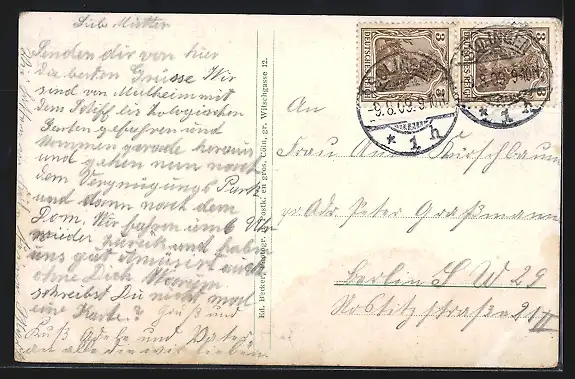 Liebe Mutter
Senden dir von hier
die besten Grüsse Wir
sind von Mülheim mit
dem Schiff bis Zologischen
Garten gefahren und
kommen gerade heraus
und gehen nun noch
dem Vergnügungs Park
und dann nach dem
Dom. Wir fahren um 6 Uhr
wieder zurück und haben
uns gut amüsirt auch
ohne Dich Warum
schreibst Du nicht mal
eine Karte? Gruß und
Kuß Adele und Vater
an alle die wir lieben
Ed. Becker, Photogr. Postk. en gros, Cöln, gr. Witschgasse 12.
DEUTSCHES REICH
3
DEUTSCHES REICH
3
-9.8.09. 9-10V.
* 1 h
* 1 h
An
Frau Kirschbaum
pr. Adr. Peter Graßmann
Berlin S W 29
Nostitzstraße 21 II